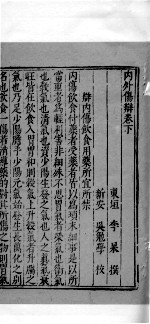 內外傷辯卷下
東垣 李杲 撰
新安 吳勉學 校
辯內傷飲食用藥所宜所禁
內傷飲食付藥者受藥者皆以為瑣末細事是以所
當重者為輕利害非細殊不思胃氣者榮氣也衛氣
也穀氣也清氣也資少陽生發之氣也人之真氣衰
旺皆在飲食入胃胃和則穀氣上升穀氣者升腐之
氣也乃足少陽膽手少陽元氣始發生長萬化之別
名也飲食一傷若消導藥的對其所傷之物則胃氣